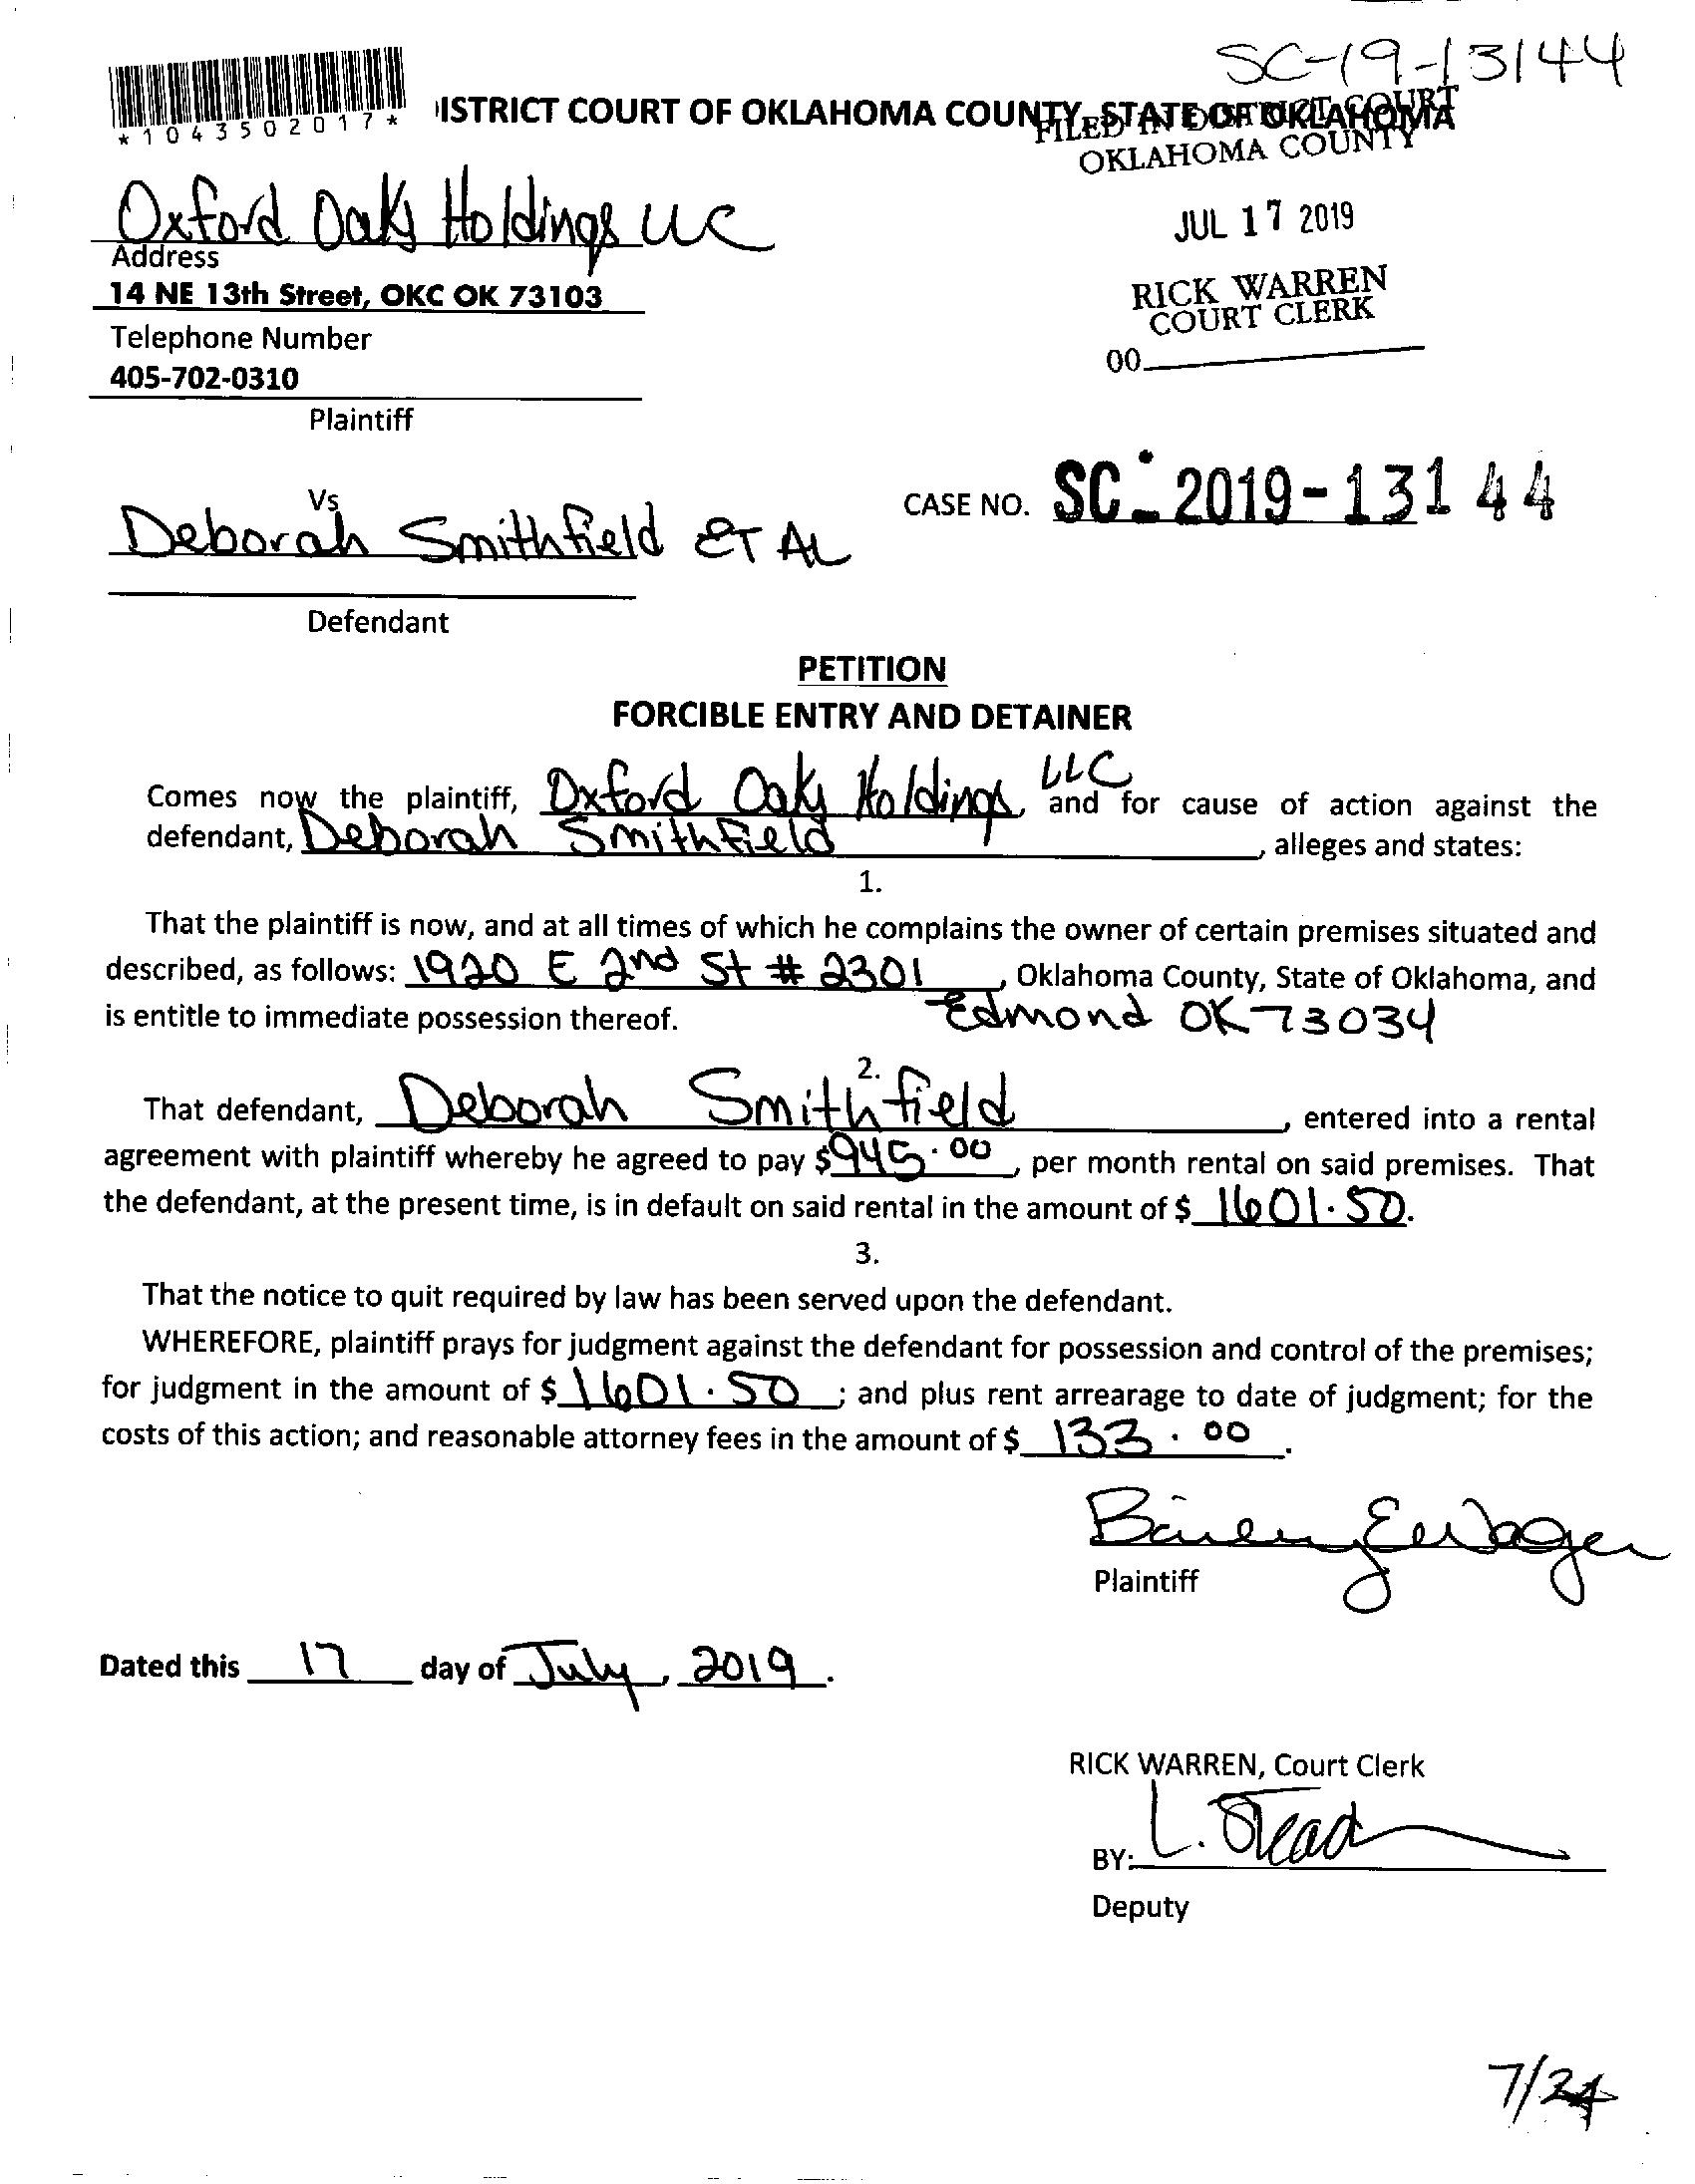 SC-19-13144
*1043502017*
ISTRICT COURT OF OKLAHOMA COUNTY, STATE OF OKLAHOMA
FILED IN DISTRICT COURT
OKLAHOMA COUNTY
Oxford Oaks Holdings LLC
JUL 17 2019
Address
14 NE 13th Street, OKC OK 73103
RICK WARREN
COURT CLERK
Telephone Number
00
405-702-0310
Plaintiff
Vs
CASE NO. SC-2019-13144
Deborah Smithfield ET AL
Defendant
PETITION
FORCIBLE ENTRY AND DETAINER
Comes now the plaintiff, Oxford Oaks Holdings, LLC and for cause of action against the
defendant, Deborah Smithfield, alleges and states:
1.
That the plaintiff is now, and at all times of which he complains the owner of certain premises situated and
described, as follows: 1920 E 2nd St # 2301, Oklahoma County, State of Oklahoma, and
is entitle to immediate possession thereof. Edmond OK 73034
2.
That defendant, Deborah Smithfield, entered into a rental
agreement with plaintiff whereby he agreed to pay $945.00, per month rental on said premises. That
the defendant, at the present time, is in default on said rental in the amount of $ 1601.50.
3.
That the notice to quit required by law has been served upon the defendant.
WHEREFORE, plaintiff prays for judgment against the defendant for possession and control of the premises;
for judgment in the amount of $ 1601.50; and plus rent arrearage to date of judgment; for the
costs of this action; and reasonable attorney fees in the amount of $ 133.00.
Plaintiff
Dated this 17 day of July, 2019.
RICK WARREN, Court Clerk
BY: L. Stead
Deputy
7/24